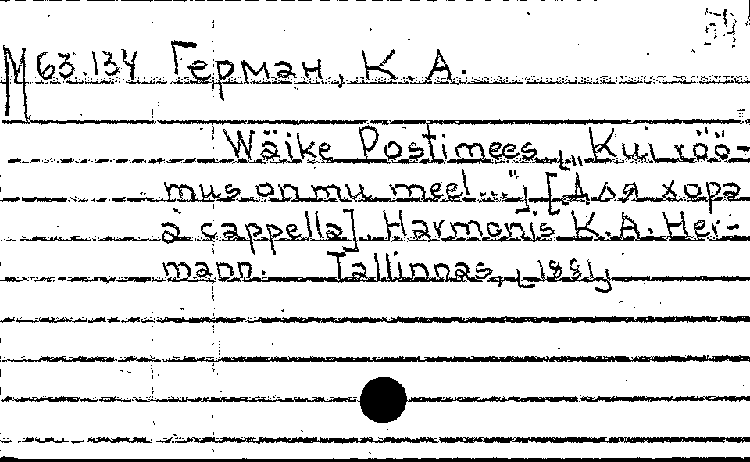 54
М 63.134 Герман, К. А.
Wäike Postimees „Kui röö-
mus on mu meel..."; [Для хора
a cappella]. Harmonis K. A. Her-
mann. Tallinnas, [1881]